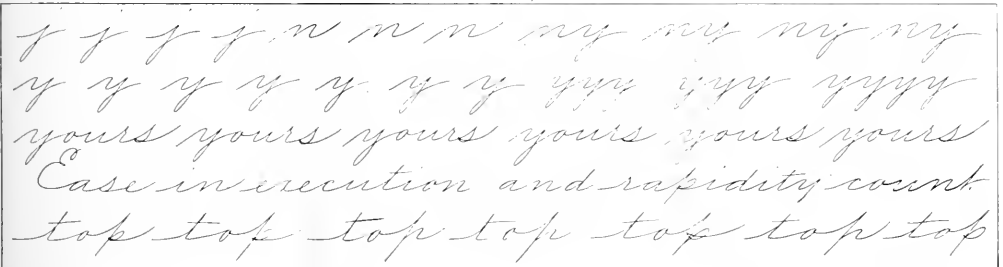 j j j j n n n ny ny ny ny
y y y y y y y yyy yyy yyyy
yours yours yours yours yours yours
Ease in execution and rapidity count
top top top top top top top